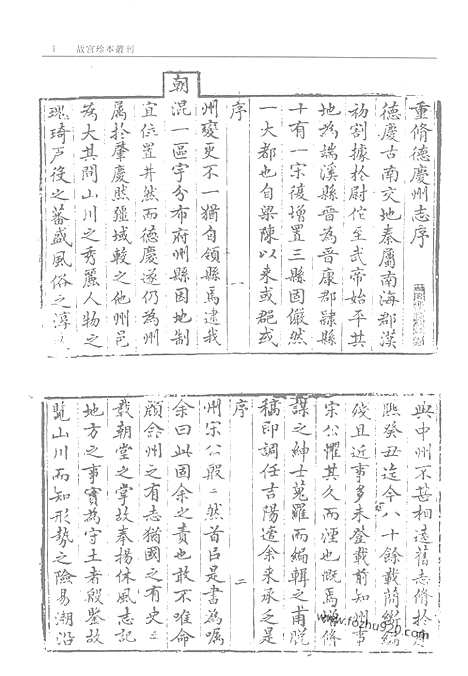 1 故宮珍本叢刊
重脩德慶州志序
德慶古南交地秦屬南海郡漢
初割據於尉佗至武帝始平其
地為端溪縣晉為晉康郡隸縣
十有一宋復增置三縣固儼然
一大都也自梁陳以來或郡或
序 一
州變更不一猶自領縣焉逮我
朝
混一區宇分布府州縣因地制
宜位置井然而德慶遂仍為州
屬於肇慶然疆域較之他州邑
為大其間山川之秀麗人物之
瑰琦戶役之蕃盛風俗之淳
與中州不甚相遠舊志脩於
熙癸丑迄今八十餘載簡編
殘且近事多未登載前知州事
宋公懼其久而湮也慨焉
謀之紳士蒐羅而編輯之甫脫
稿即調任吉陽適余來承乏是
序 二
州宋公殷二然首臣是書為囑
余曰此固余之責也敢不唯命
顧念州之有志猶國之有史
載朝堂之掌故奉揚休風志記
地方之事實為守土者殷鑒故
覽山川而知形勢之險易溯沿
www.fozhu920.com